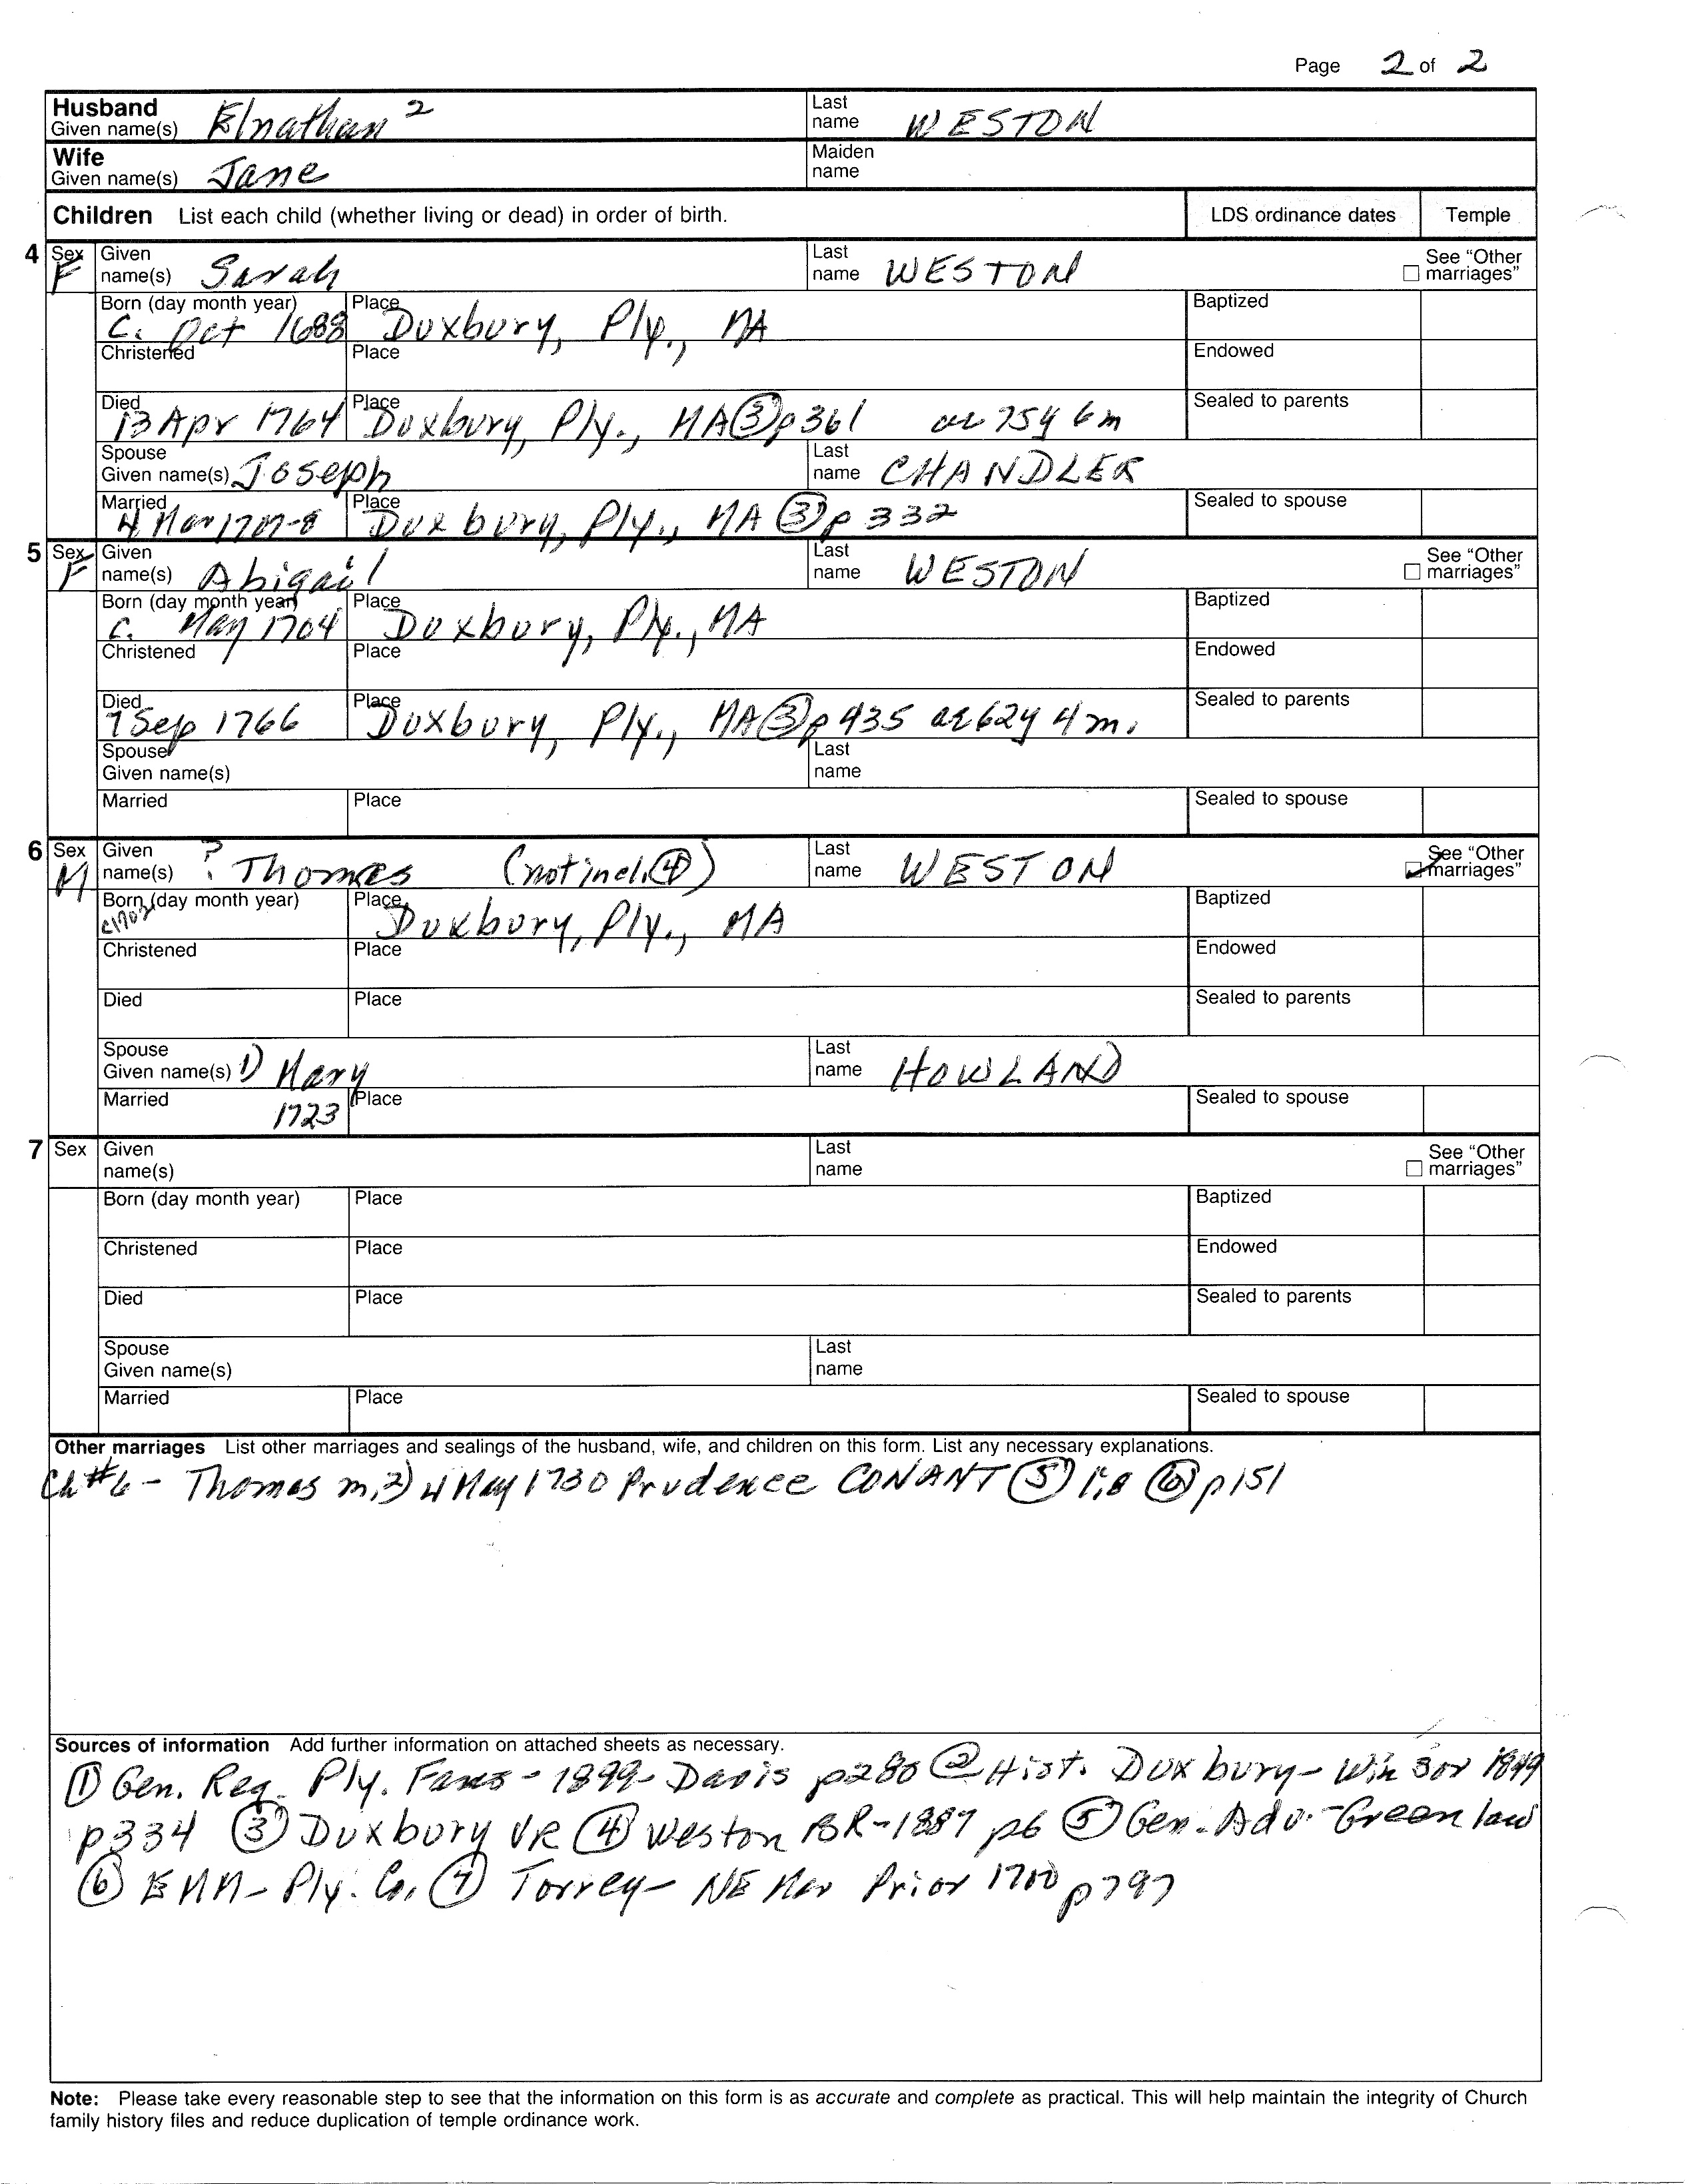 Page 2 of 2
Husband Given name(s) Elnathan 2 Last name WESTON
Wife Given name(s) Jane Maiden name
Children List each child (whether living or dead) in order of birth. LDS ordinance dates Temple
4 Sex F Given name(s) Sarah Last name WESTON See "Other marriages"
Born (day month year) C. Oct 1688 Place Duxbury, Ply., MA Baptized
Christened Place Endowed
Died 13 Apr 1764 Place Duxbury, Ply., MA ③ p361 ae 75y 6m Sealed to parents
Spouse Given name(s) Joseph Last name CHANDLER
Married 4 Mar 1707-8 Place Duxbury, Ply., MA ③ p 332 Sealed to spouse
5 Sex F Given name(s) Abigail Last name WESTON See "Other marriages"
Born (day month year) C. May 1704 Place Duxbury, Ply., MA Baptized
Christened Place Endowed
Died 7 Sep 1766 Place Duxbury, Ply., MA ③ p 435 ae 62y 4m. Sealed to parents
Spouse Given name(s) Last name
Married Place Sealed to spouse
6 Sex M Given name(s) ? Thomas (not incl. ④) Last name WESTON See "Other marriages"
Born (day month year) c1702 Place Duxbury, Ply., MA Baptized
Christened Place Endowed
Died Place Sealed to parents
Spouse Given name(s) 1) Mary Last name HOWLAND
Married 1723 Place Sealed to spouse
7 Sex Given name(s) Last name See "Other marriages"
Born (day month year) Place Baptized
Christened Place Endowed
Died Place Sealed to parents
Spouse Given name(s) Last name
Married Place Sealed to spouse
Other marriages List other marriages and sealings of the husband, wife, and children on this form. List any necessary explanations.
Ch #6 - Thomas m. 2) 4 May 1730 Prudence CONANT ⑤ 1:8 ⑥ p151
Sources of information Add further information on attached sheets as necessary.
① Gen. Reg. Ply. Fams - 1899 - Davis p280 ② Hist. Duxbury - Winsor 1849
p334 ③ Duxbury VR ④ Weston BR-1887 p6 ⑤ Gen. Adv. - Greenlaw
⑥ EMM - Ply. Co. ⑦ Torrey - NE Mar Prior 1700 p797
Note: Please take every reasonable step to see that the information on this form is as accurate and complete as practical. This will help maintain the integrity of Church
family history files and reduce duplication of temple ordinance work.